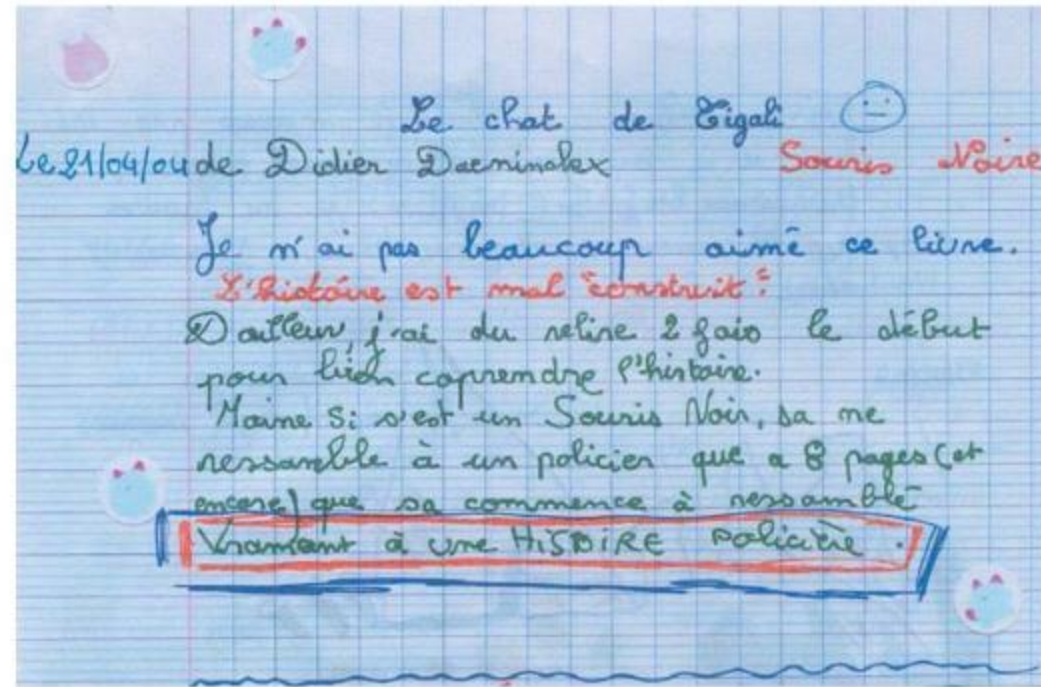 Le chat de Tigali
Le 21/04/04 de Didier Daeninckx Souris Noire
Je n'ai pas beaucoup aimé ce livre.
L'histoire est mal "construit".
D'ailleur, j'ai du relire 2 fois le début
pour bien coprendre l'histoire.
Maime si s'est un Souris Noir, sa ne
ressamble à un policier que a 8 pages (et
encore) que sa commence à ressamblé
Vramant à une HISTOIRE policière.